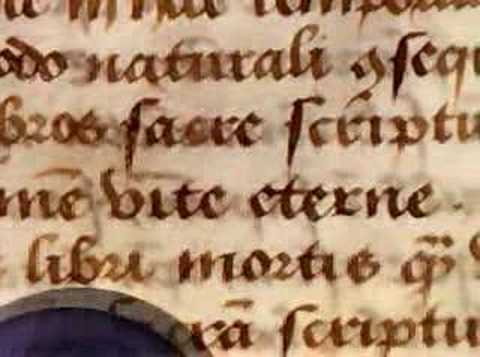 odo naturali ꝯsequ
bros sacre scriptu
mē vite eterne.
libri mortis qm̄
crā scriptu